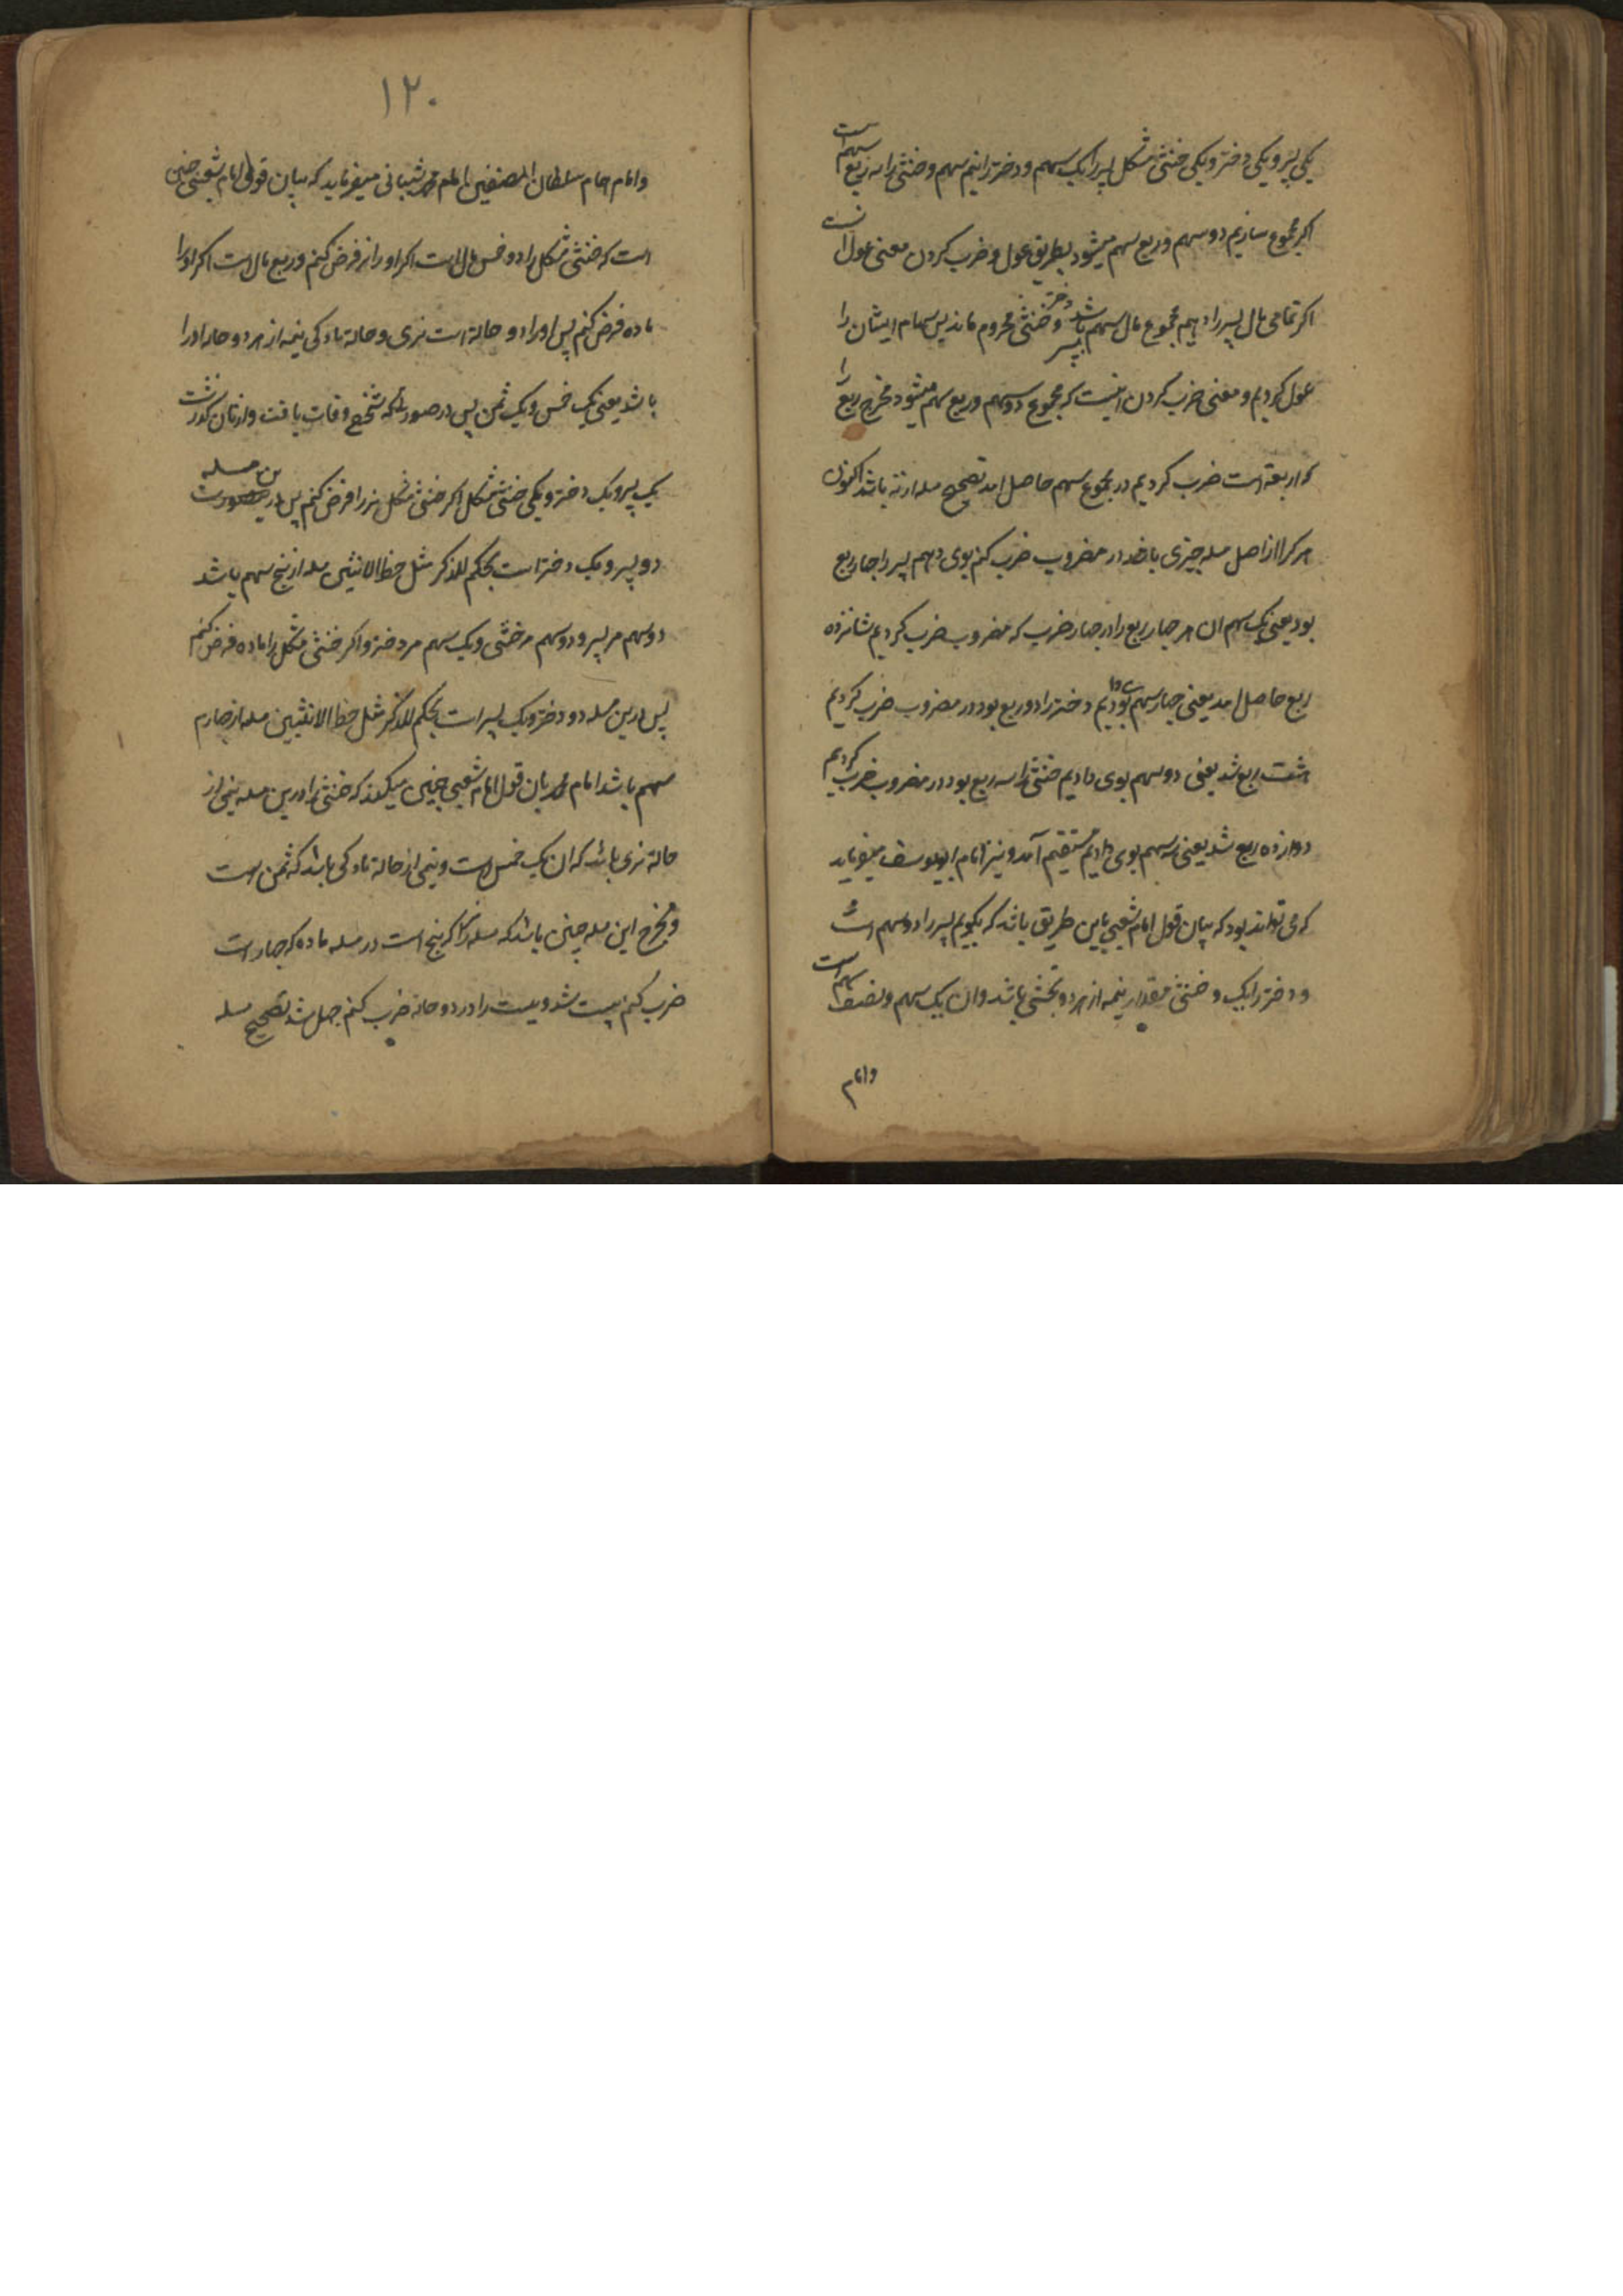 یکی پسر و یکی دختر و یکی خنثی مشکل پسر را یک سهم و دختر را نیم سهم و خنثی را سه ربع سهم است
اگر مجموع سازیم دو سهم و ربع سهم میشود بطریق عول و ضرب کردن معنی عول
اگر تمامی مال پسر را دهیم مجموع مال سهم پسر باشد دختر و خنثی محروم ماند پس سهام ایشان را
عول کردیم و معنی ضرب کردن اینست که مجموع دو سهم و ربع سهم میشود مخرج ربع را
که اربعة است ضرب کردیم در مجموع سهم حاصل امد تصحیح مسله از نه باشد اکنون
هر کرا از اصل مسله چیزی باشد در مضروب ضرب کنم بوی دهم پسر را چهار ربع
بود یعنی یک سهم ان هر چهار ربع را در چهار ضرب که مضروب ضرب کردیم شانزده
ربع حاصل امد یعنی چهار سهم بوی دادیم دختر را دو ربع بود در مضروب ضرب کردیم
هشت ربع شد یعنی دو سهم بوی دادیم خنثی را سه ربع بود در مضروب ضرب کردیم
دوازده ربع شد یعنی سه سهم بوی دادیم مستقیم آمد و نیز امام ابو یوسف میفرماید
که می تواند بود که بیان قول امام شعبی باین طریق باشد که بگویم پسر را دو سهم است
و دختر را یک و خنثی مقدار نیمه از هر دو بخشی باشد و ان یک سهم و نصف سهم است
و امام
۱۲۰
و امام همام سلطان المصنفین امام محمد شیبانی میفرماید که بیان قول امام شعبی چنین
است که خنثی مشکل را دو خمس مال است اگر او را نر فرض کنم و ربع مال است اگر او را
ماده فرض کنم پس او را دو حالة است نری و حالة مادکی نیمه از هر دو حاله او را
باشد یعنی یک خمس و یک ثمن پس در صورتیکه شخصی وفات یافت وارثان گذشت
یک پسر و یک دختر و یکی خنثی مشکل اگر خنثی مشکل نر را فرض کنم پس درین مسله
دو پسر و یک دختر است بحکم للذکر مثل حظ الانثیین مسله از پنج سهم باشد
دو سهم مر پسر و دو سهم مر خنثی و یک سهم مر دختر و اگر خنثی مشکل را ماده فرض کنم
پس درین مسله دو دختر و یک پسر است بحکم للذکر مثل حظ الانثیین مسله از چهارم
سهم باشد امام محمد بیان قول امام شعبی چنین میکند که خنثی را درین مسله نیمی از
حالة نری باشد که ان یک خمس است و نیمی از حالة مادکی باشد که ثمن است
و مخرج این مسله چنین باشد که مسله نر را که پنج است در مسله ماده که چهار است
ضرب کنم بیست شد و بیست را در دو حاله ضرب کنم چهل شد تصحیح مسله